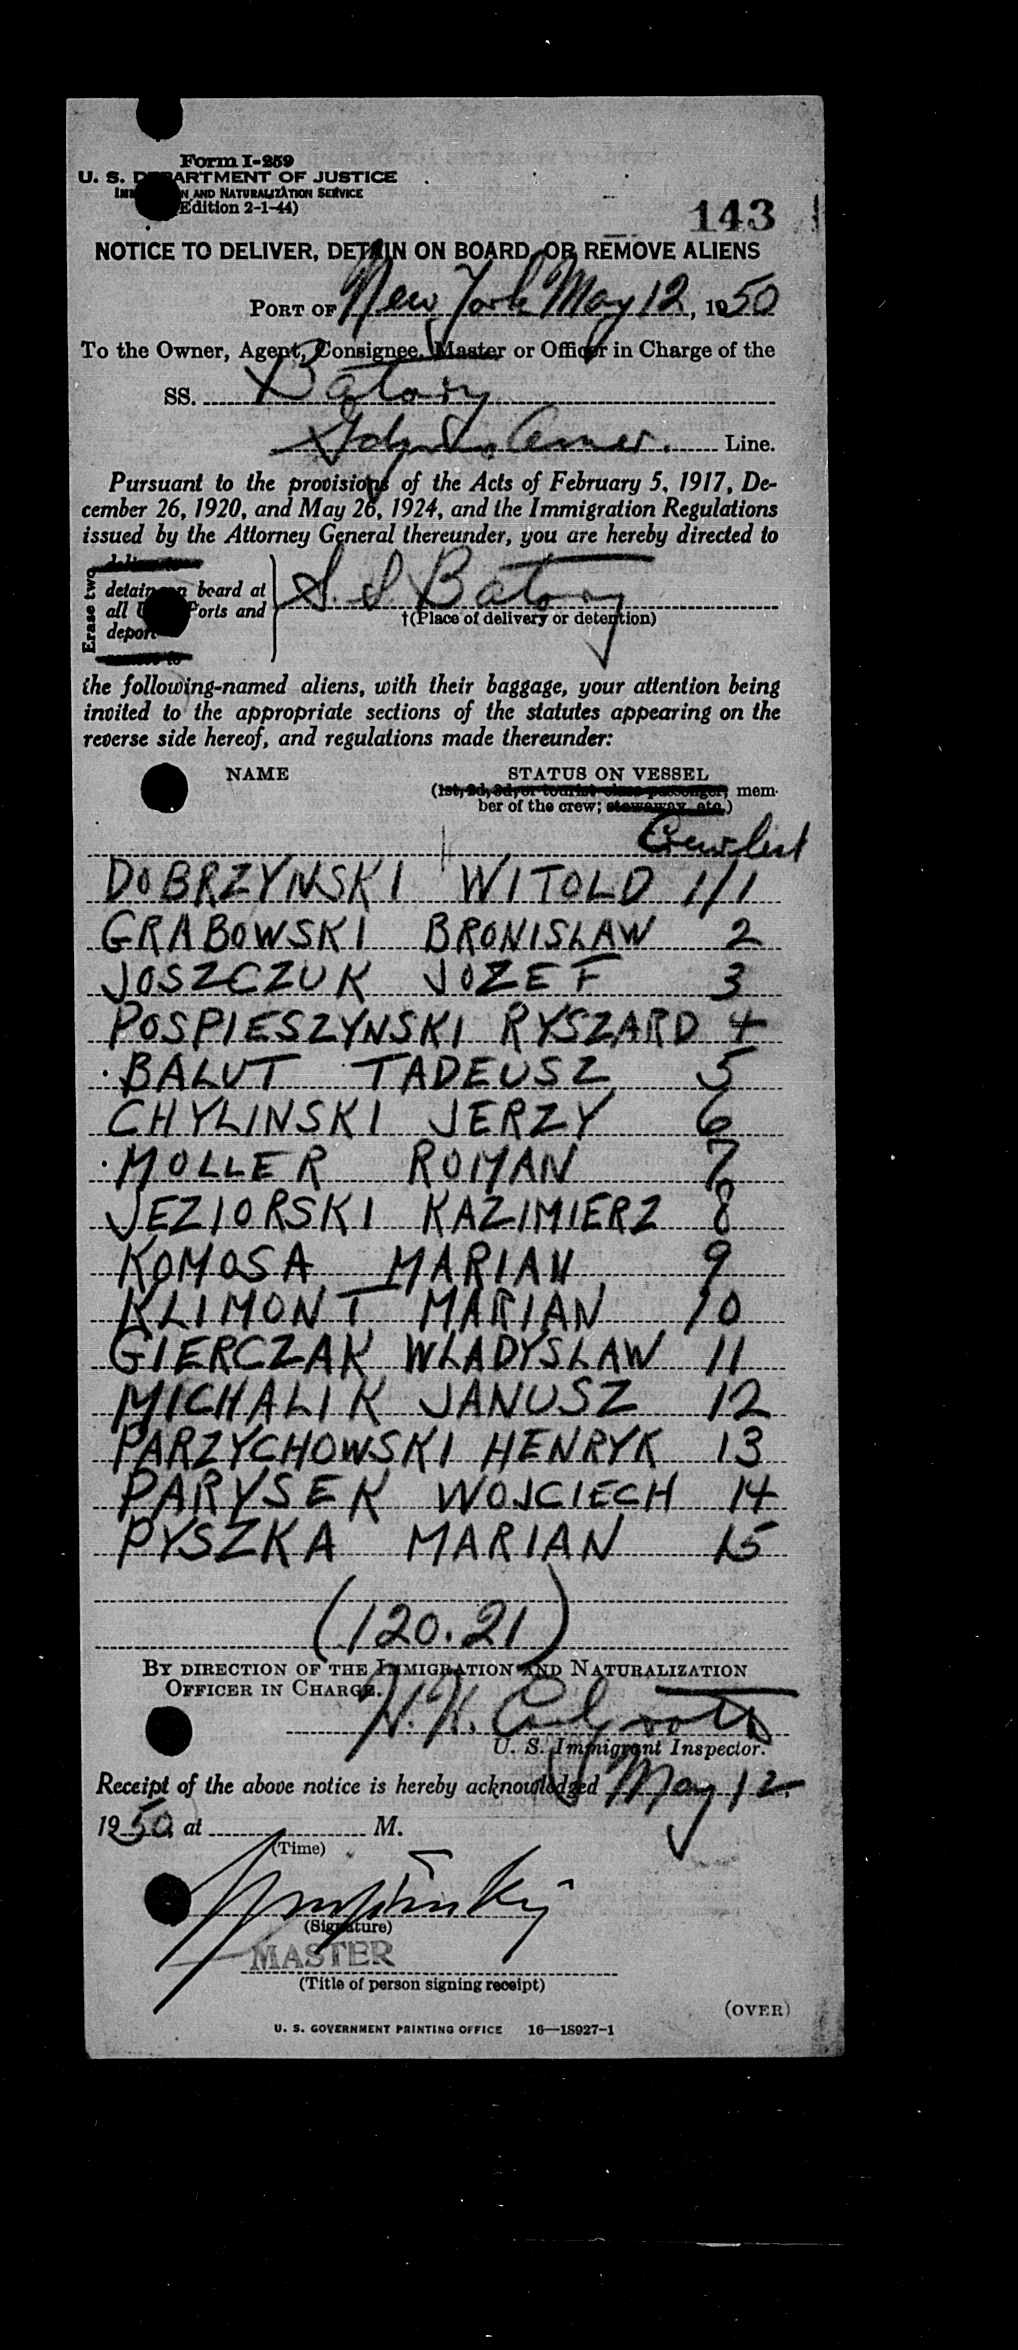 Form I-259
U. S. DEPARTMENT OF JUSTICE
IMMIGRATION AND NATURALIZATION SERVICE
(Edition 2-1-44)
143
NOTICE TO DELIVER, DETAIN ON BOARD, OR REMOVE ALIENS
PORT OF New York May 12, 1950
To the Owner, Agent, Consignee, Master or Officer in Charge of the
SS. Batory
Gdynia Amer. Line.
Pursuant to the provisions of the Acts of February 5, 1917, De-
cember 26, 1920, and May 26, 1924, and the Immigration Regulations
issued by the Attorney General thereunder, you are hereby directed to
Erase two
deliver to
detain on board at
all U. S. Ports and
deport
remove to
S. S. Batory
†(Place of delivery or detention)
the following-named aliens, with their baggage, your attention being
invited to the appropriate sections of the statutes appearing on the
reverse side hereof, and regulations made thereunder:
NAME STATUS ON VESSEL
(1st, 2d, 3d, or tourist class passenger; mem-
ber of the crew; stowaway, etc.)
Crew list
DOBRZYNSKI WITOLD 1/1
GRABOWSKI BRONISLAW 2
JOSZCZUK JOZEF 3
POSPIESZYNSKI RYSZARD 4
BALUT TADEUSZ 5
CHYLINSKI JERZY 6
MOLLER ROMAN 7
JEZIORSKI KAZIMIERZ 8
KOMOSA MARIAN 9
KLIMONT MARIAN 10
GIERCZAK WLADYSLAW 11
MICHALIK JANUSZ 12
PARZYCHOWSKI HENRYK 13
PARYSEK WOJCIECH 14
PYSZKA MARIAN 15
(120.21)
BY DIRECTION OF THE IMMIGRATION AND NATURALIZATION
OFFICER IN CHARGE.
U. S. Immigrant Inspector.
Receipt of the above notice is hereby acknowledged May 12,
1950 at M.
(Time)
(Signature)
MASTER
(Title of person signing receipt)
(OVER)
U. S. GOVERNMENT PRINTING OFFICE 16—18927-1